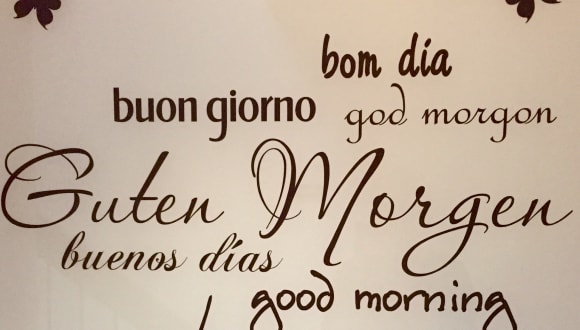 bom dia
buon giorno
god morgon
Guten Morgen
buenos días
good morning